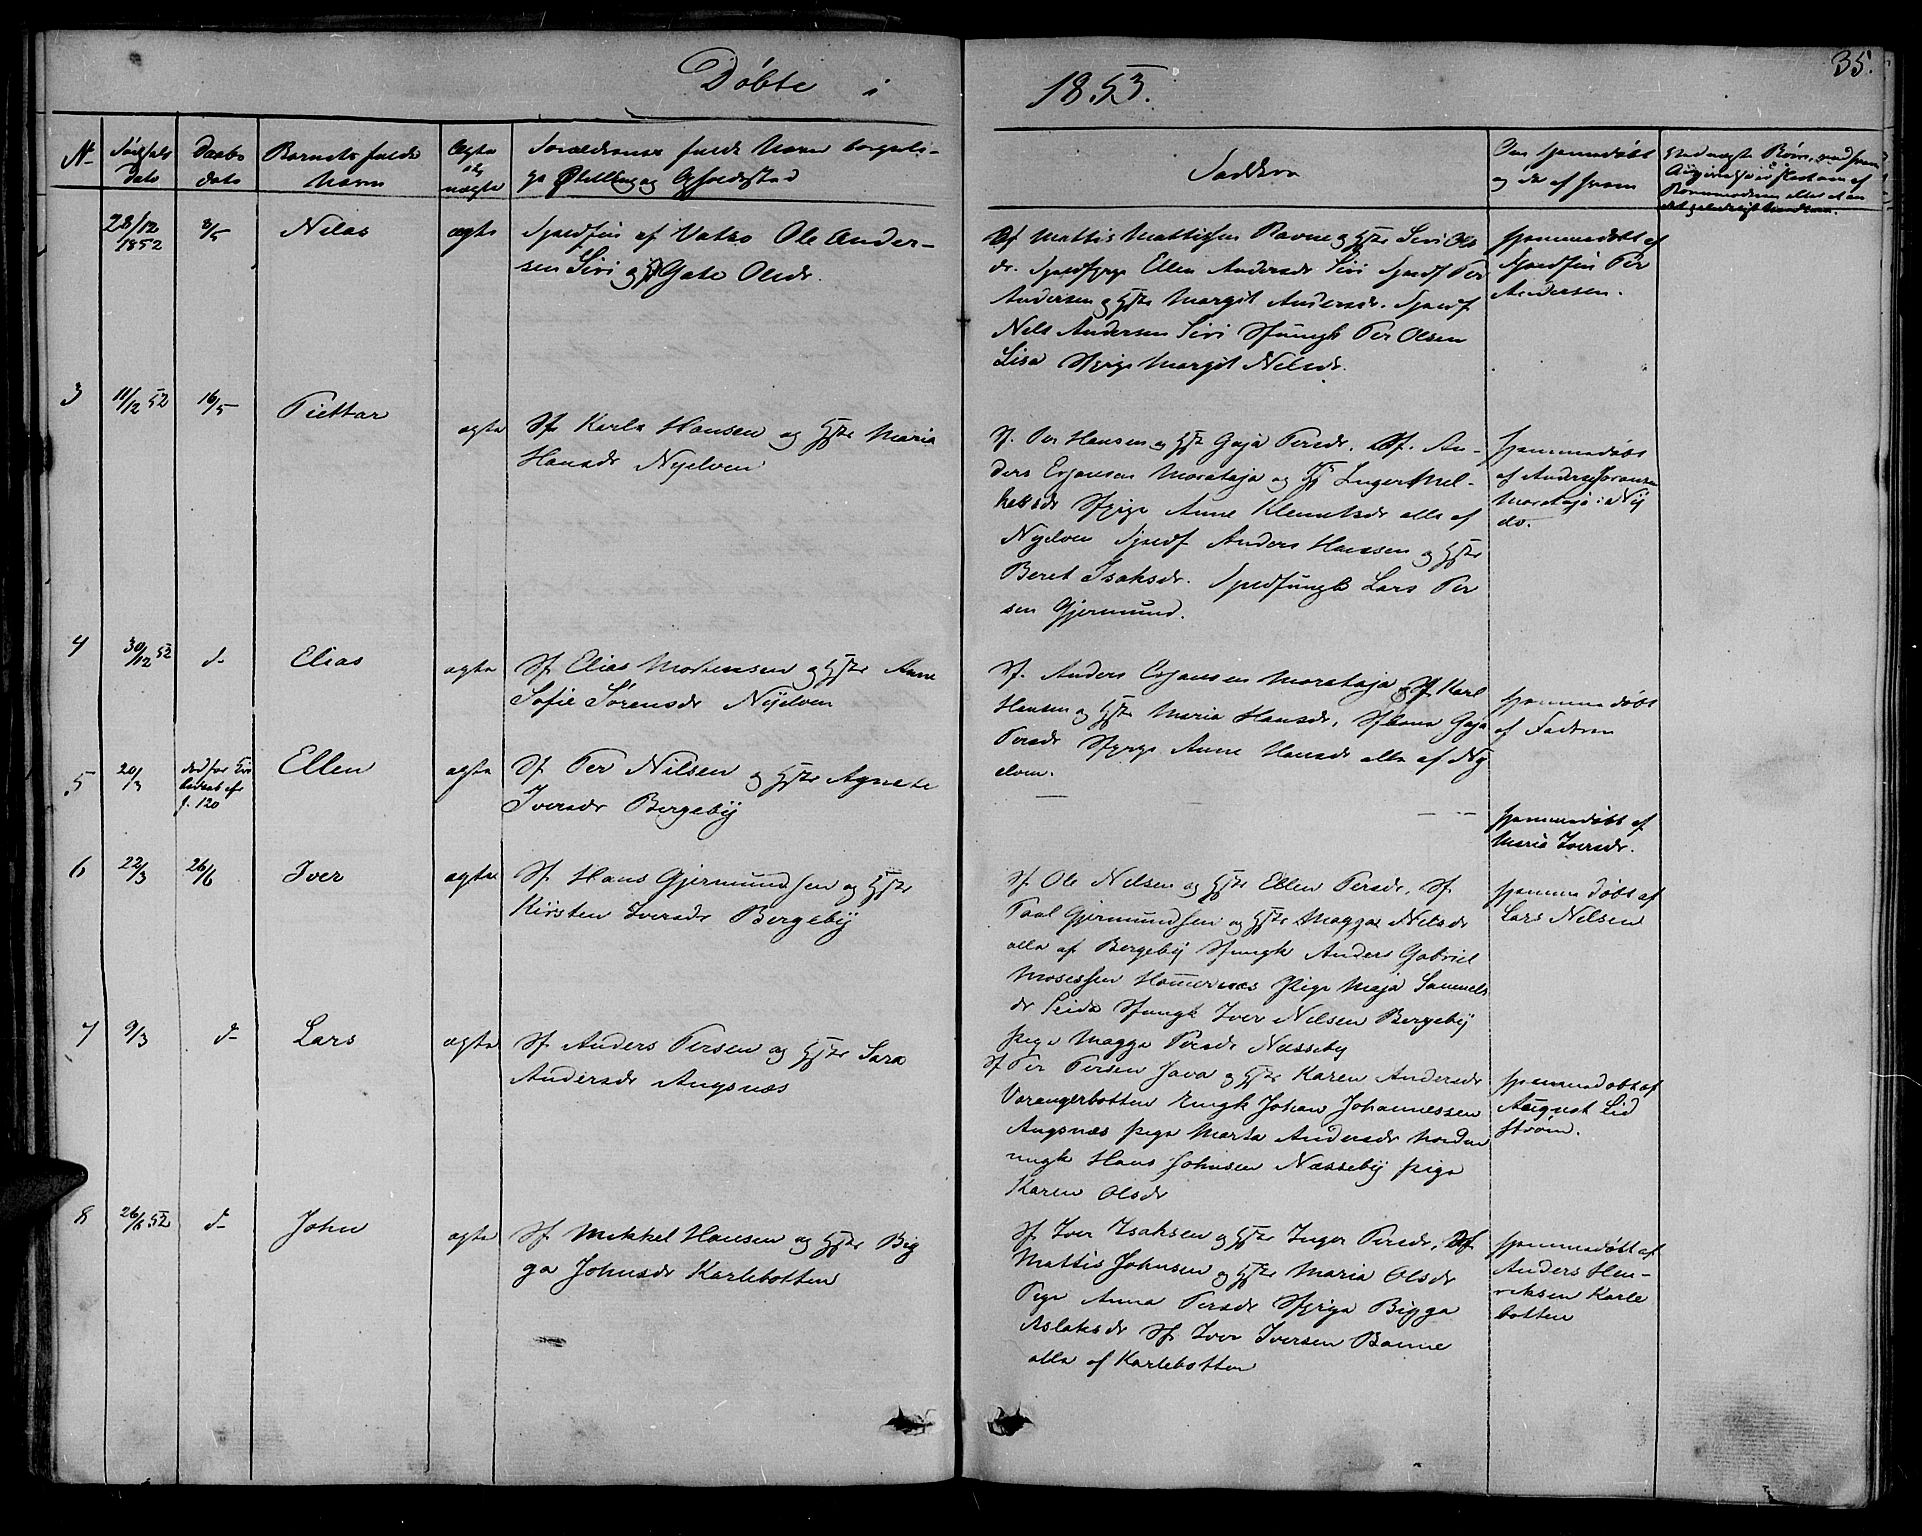 Døbte i 1853.
35.
N-
Fødsels dato
Daabs dato
Barnets fulde Navn
Ægte og uægte
Forældrenes fulde Navn borgeli-
ge Stilling og Opholdsted
Faddere
Om hjemmedøbt
og da af hvem
28/12 1852
8/5
Nilas
ægte
af Vatso Ole Ander-
sen Sivi og Gate Olsdr.
Mattis Mattissen Ravne og Hstr Sivi Ols
dr. Ellen Andersdr Sivi Per
Andersen og Hstr Margit Andersdr.
Nels Andersen Sivi Per Olsen
Lisa Margit Nilsdr.
hjemmedøbt af
Per
Andersen.
3
11/12 52
16/5
Piettar
ægte
Sf Karls Hansen og Hstr Maria
Hansdr Nyelven
Sf. Per Hansen og Hstr Gaja Persdr. Sf. An-
ders Erjansen Morataja og Hst Inger Mel-
kelsdr Anne Klemetsdr alle af
Nyelven Anders Hansen og Hstr
Beret Isaksdr. Lars Per
sen Gjermund.
hjemmedøbt
af Anders
Morataja i Ny
elv.
4
30/12 52
d-
Elias
ægte
Sf Elias Mortensen og Hstr Anne
Sofie Sørensdr Nyelven
Sf. Anders Erjansen Morataja og Sf Karl
Hansen og Hstr Maria Hansdr, Gaja
Persdr Anne Hansdr alle af Ny
elven.
hjemmedøbt
af Fadren
5
20/3
død før
f. 120
Ellen
ægte
Sf Per Nilsen og Hstr Agnete
Iversdr Bergeby
hjemmedøbt af
Maria Iversdr.
6
22/3
26/6
Iver
ægte
Sf Hans Gjermundsen og Hstr
Kirsten Iversdr Bergeby
Sf Ole Nelsen og Hstr Ellen Persdr, Sf.
Paal Gjermundsen og Hstr Magga Nilsdr
alle af Bergeby Sfungk Anders Gabriel
Mosessen Hamernæs Pige Maja Samuels
dr Seida Sfungk Iver Nelsen Bergeby
pige Magga Persdr Næsseby
hjemmedøbt af
Lars Nelsen
7
9/3
d-
Lars
ægte
Sf Anders Persen og Hstr Sara
Andersdr Angsnæs
Sf Per Persen Java og Hstr Karen Andersdr
Varangerbotten Ungk Johan Johannessen
Angsnæs pige Marta Andersdr
ungk Hans Johnsen Næsseby pige
Karen Olsdr
hjemmedøbt af
August Lid
strøm.
8
26/6 52
d-
John
ægte
Sf Mikkel Hansen og Hstr Big
ga Johnsdr Karlebotten
Sf Iver Isaksen og Hstr Inger Persdr, Sf
Mattis Johnsen og Hstr Maria Olsdr
Pige Anna Persdr Sfpige Bigga
Aslaksdr Sf Iver Iversen Banne
alle af Karlebotten
hjemmedøbt af
Anders Hen-
riksen Karle
botten